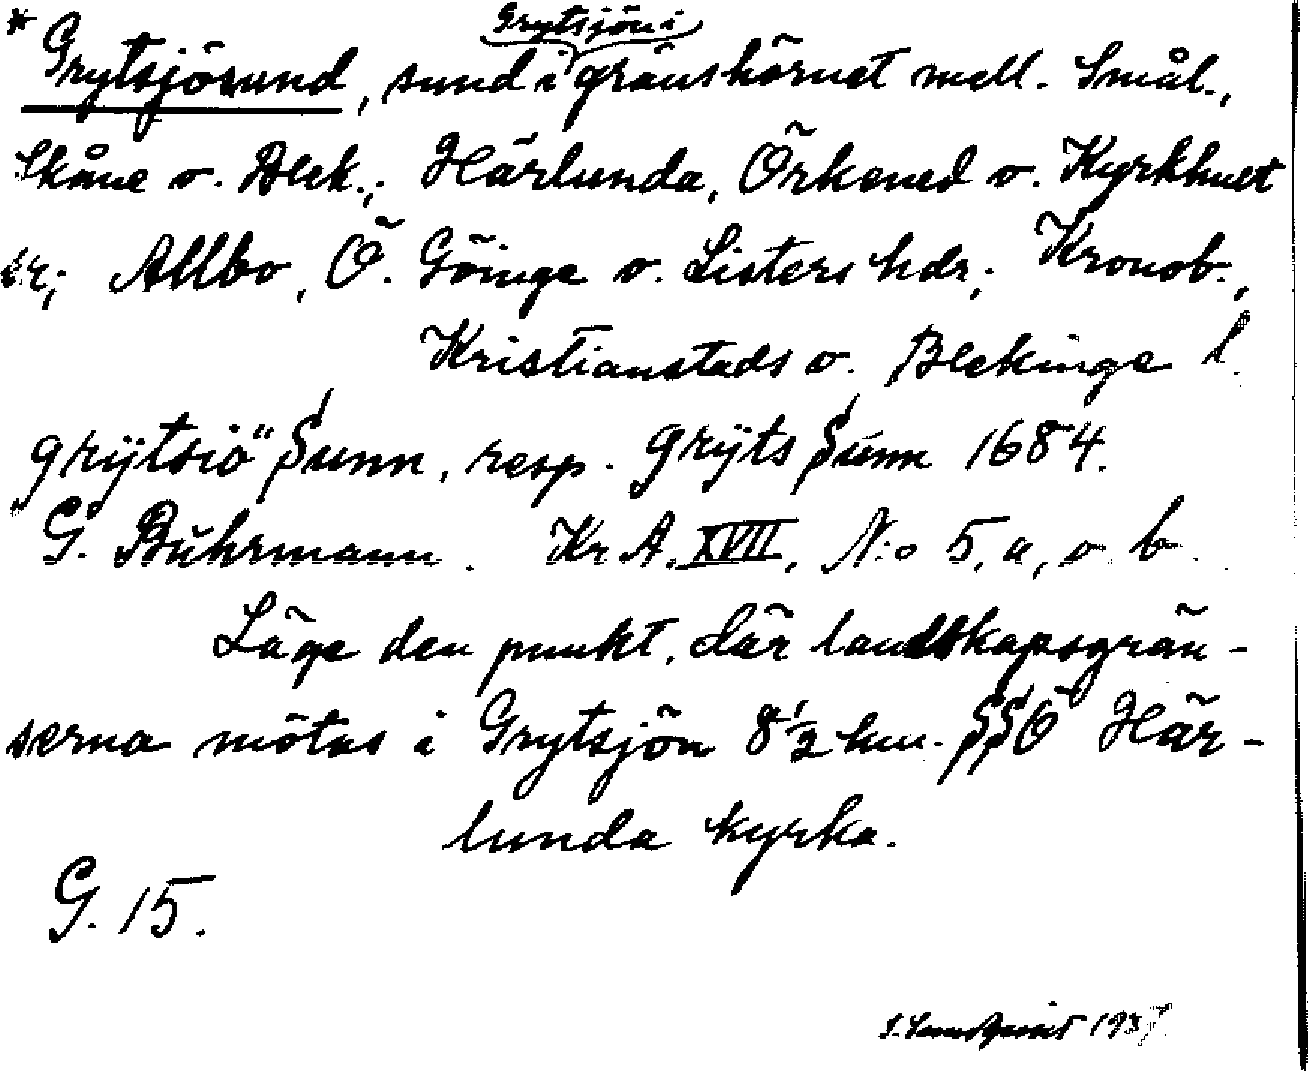 * Grytsjösund, sund i Grytsjön i gränshörnet mell. Smål.,
Skåne o. Blek.; Härlunda, Örkened o. Kyrkhult
sr; Allbo, Ö. Göinge o. Listers hdr; Kronob.,
Kristianstads o. Blekinge l.
grÿtsiö Sunn, resp. grÿts Sünn 1684.
G. Buhrmann. Kr A. XVII, N:o 5, a, o b.
Läge den punkt, där landskapsgrän-
serna mötas i Grytsjön 8 1/2 km. SSÖ Här-
lunda kyrka.
G. 15.
1937